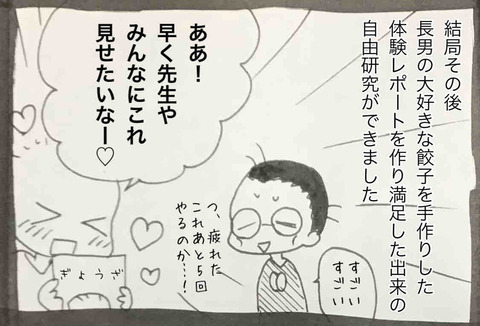 結局その後
長男の大好きな餃子を手作りした
体験レポートを作り満足した出来の
自由研究ができました
ああ！
早く先生や
みんなにこれ
見せたいなー♡
すごい
すごい
つ、疲れた
これあと5回
やるのか…！
ぎょうざ